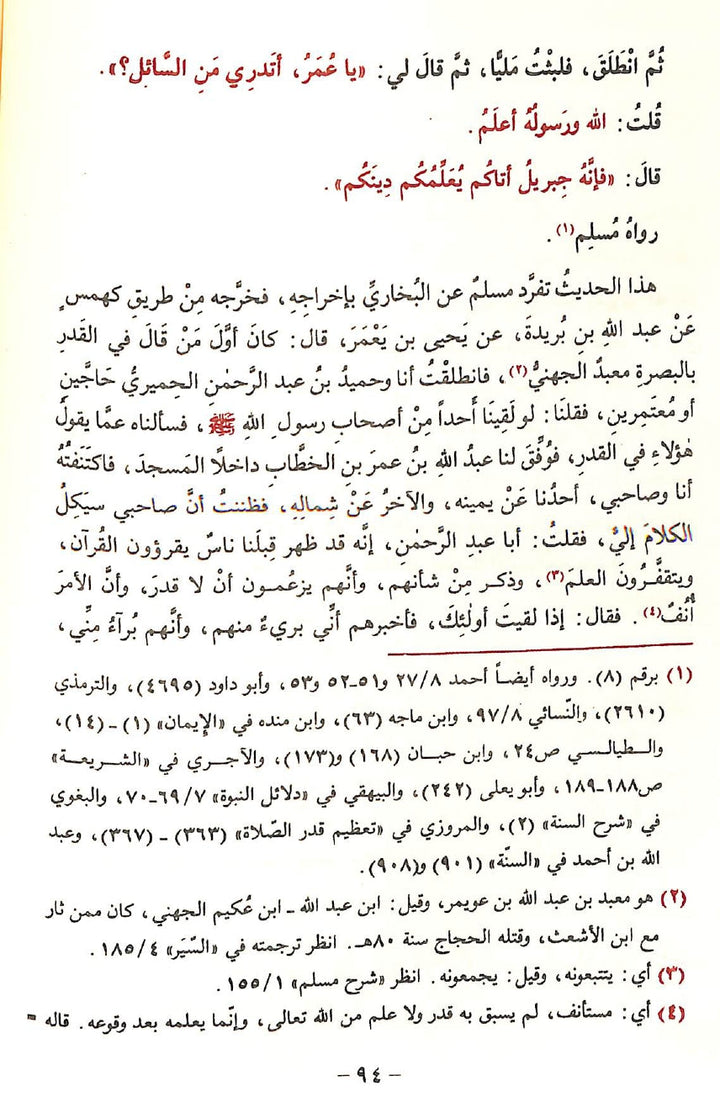 ثُمَّ انْطَلَقَ، فلبثْتُ مَليًّا، ثمَّ قالَ لي: «يا عُمَرُ، أتَدرِي مَنِ السَّائل؟».
قُلتُ: الله ورَسولُهُ أعلَمُ.
قالَ: «فإنَّهُ جِبريلُ أتاكُم يُعَلِّمُكُم دِينَكُم».
رواهُ مُسلِم(١).
هذا الحديثُ تفرَّد مسلمٌ عن البُخاريِّ بإخراجِهِ، فخرَّجه مِنْ طريقِ كهمسٍ
عَنْ عبد اللهِ بنِ بُريدةَ، عن يَحيى بن يَعْمَرَ، قال: كانَ أوَّلَ مَنْ قالَ في القَدرِ
بالبصرةِ معبدٌ الجهنيُّ(٢)، فانطلقْتُ أنا وحميدُ بنُ عبد الرَّحمٰنِ الحِميريُّ حَاجَّينِ
أو مُعتَمِرين، فقلنَا: لو لَقِينَا أحداً مِنْ أصحابِ رسولِ اللهِ ﷺ، فسألناه عمَّا يقولُ
هٰؤلاءِ في القدرِ، فوُفِّقَ لنا عبدُ اللهِ بنُ عمرَ بنِ الخطَّابِ داخلًا المَسجدَ، فاكتَنَفْتُهُ
أنا وصاحبي، أحدُنا عَنْ يمينه، والآخرُ عَنْ شِمالِهِ، فظننتُ أنَّ صاحبي سيَكِلُ
الكلامَ إليَّ، فقلتُ: أبا عبدِ الرَّحمٰنِ، إنَّه قد ظهر قِبلَنا ناسٌ يقرؤون القُرآن،
ويتقفَّرُونَ العلمَ(٣)، وذكر مِنْ شأنهم، وأنَّهم يزعُمون أنْ لا قدرَ، وأنَّ الأمرَ
أُنُفٌ(٤). فقال: إذا لقيتَ أولٰئِكَ، فأخبرهم أنِّي بريءٌ منهم، وأنَّهم بُرآءُ مِنِّي،
(١) برقم (٨). ورواه أيضاً أحمد ٢٧/٨ و٥١-٥٢ و٥٣، وأبو داود (٤٦٩٥)، والترمذي
(٢٦١٠)، والنّسائي ٩٧/٨، وابن ماجه (٦٣)، وابن منده في «الإيمان» (١) -(١٤)،
والطيالسي ص٢٤، وابن حبان (١٦٨) و(١٧٣)، والآجري في «الشريعة»
ص١٨٨-١٨٩، وأبو يعلى (٢٤٢)، والبيهقي في «دلائل النبوة» ٦٩/٧-٧٠، والبغوي
في «شرح السنة» (٢)، والمروزي في «تعظيم قدر الصّلاة» (٣٦٣) - (٣٦٧)، وعبد
الله بن أحمد في «السنّة» (٩٠١) و(٩٠٨).
(٢) هو معبد بن عبد الله بن عويمر، وقيل: ابن عبد الله - ابن عُكيم الجهني، كان ممن ثار
مع ابن الأشعث، وقتله الحجاج سنة ٨٠هـ. انظر ترجمته في «السِّيَر» ١٨٥/٤.
(٣) أي: يتتبعونه، وقيل: يجمعونه. انظر «شرح مسلم» ١٥٥/١.
(٤) أي: مستأنف، لم يسبق به قدر ولا علم من الله تعالى، وإنّما يعلمه بعد وقوعه. قاله =
- ٩٤ -